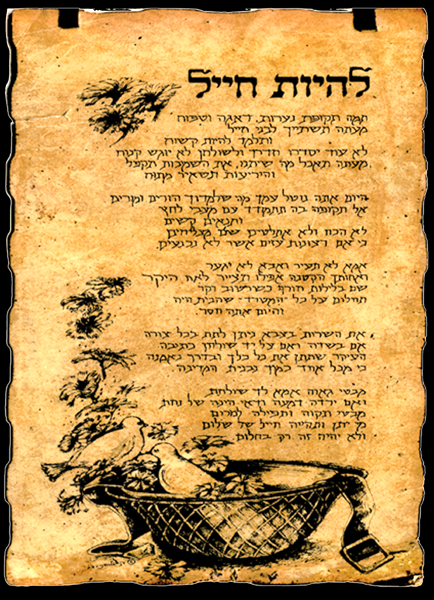 להיות חייל
תמה תקופת נערות, דאגה וטיפוח
מעתה תשתייך לבני חייל
ותלמד להיות קשוח
לא עוד יסדרו חדרך ולשולחן לא יוגש קינוח
מעתה תאכל מה שיתנו, את השמיכות תקפל
והיריעות תשאיר מתוח
היום אתה נוטל עמך מה שלמדוך הורים ומורים
אל תקופה בה תתמודד עם מצבי לחץ
ותנאים קשים
לא הכח ולא אתלטים שם מצליחים
כי אם רצונות עזים אשר לא נכנעים.
אמא לא תעיר ואבא לא יגער
ואחותך הקטנה אפילו תצייר לאח היקר
שם בלילות חורף כשרטוב וקר
תחלום על כל המטרד- שהבית היה
והיום אתה חסר.
את השרות בצבא ניתן לתת בכל צורה
אם בשדה ואם על יד שולחן כתיבה
העיקר שתתן את כל כלך ובדרך נאמנה
כי מכל אחד כמוך נבנית המדינה.
מבטי גאוה אמא לך שולחת
ואם ירדה דמעה ודאי היתה של נחת
מבטי תקוה ותפילה למרום
מי יתן ותהיה חייל של שלום
ולא יהיה זה רק בחלום